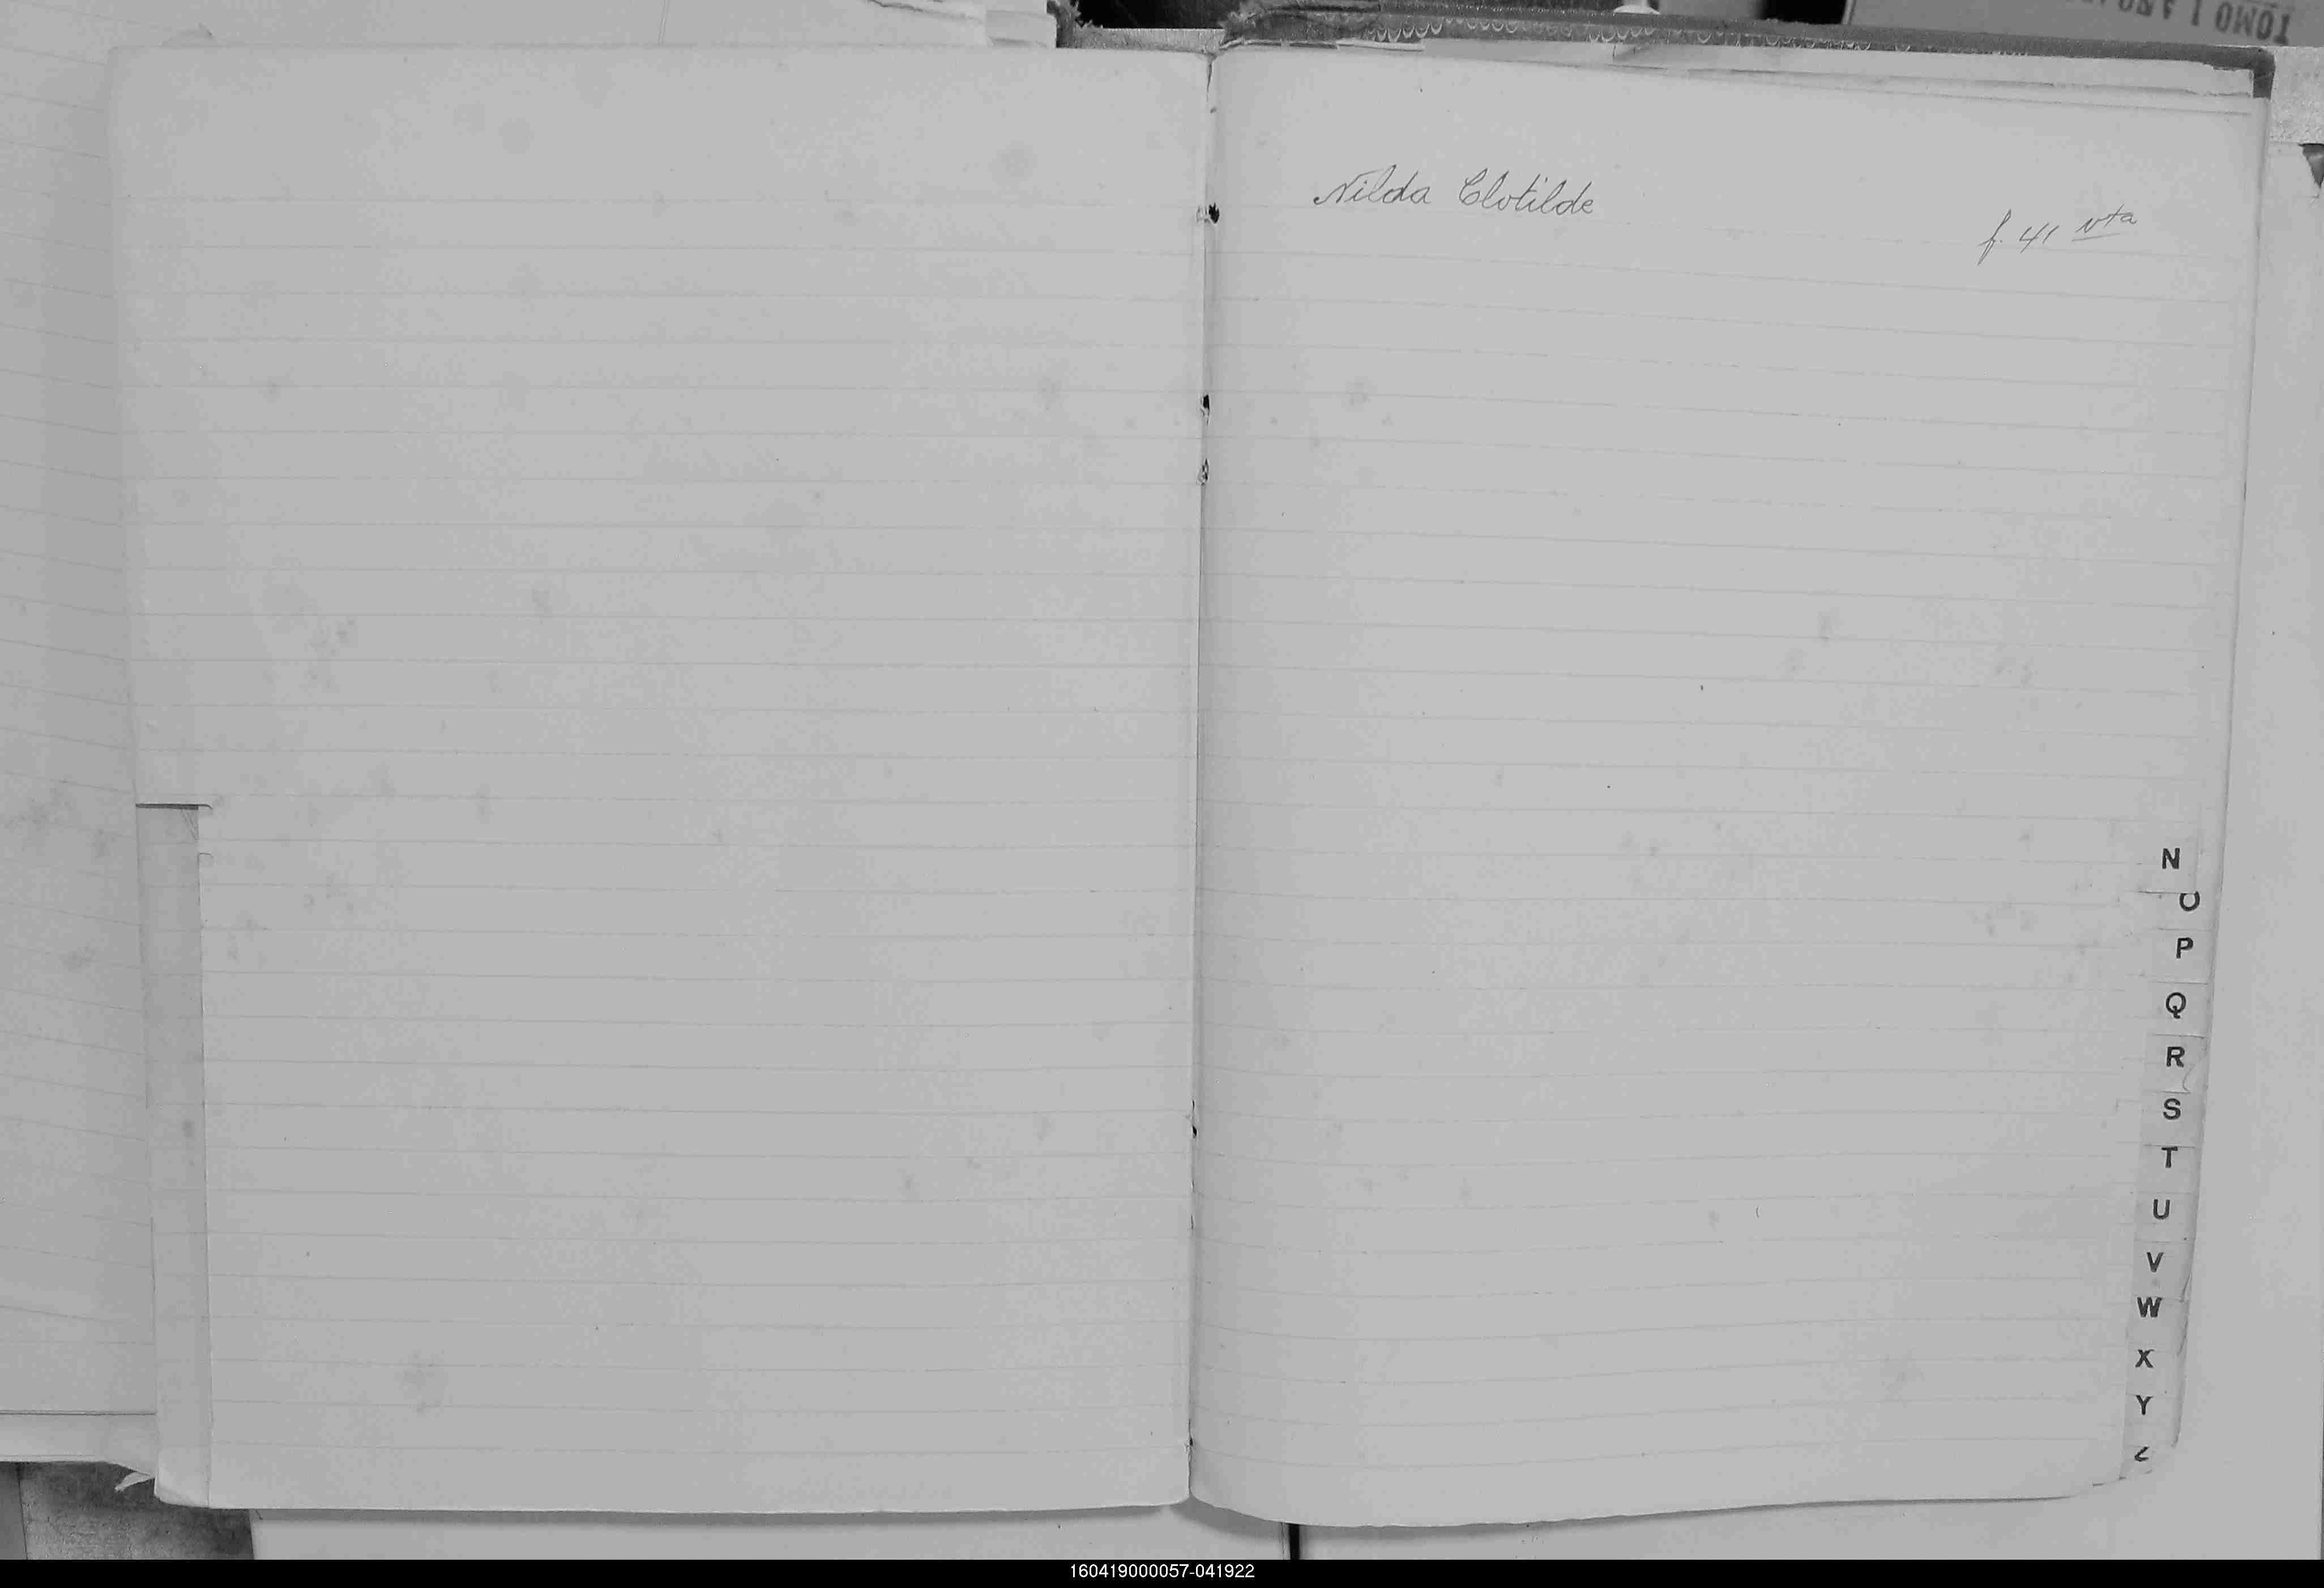 TOMO I AÑO
Nilda Clotilde
f. 41 vta
N
O
P
Q
R
S
T
U
V
W
X
Y
Z
160419000057-041922